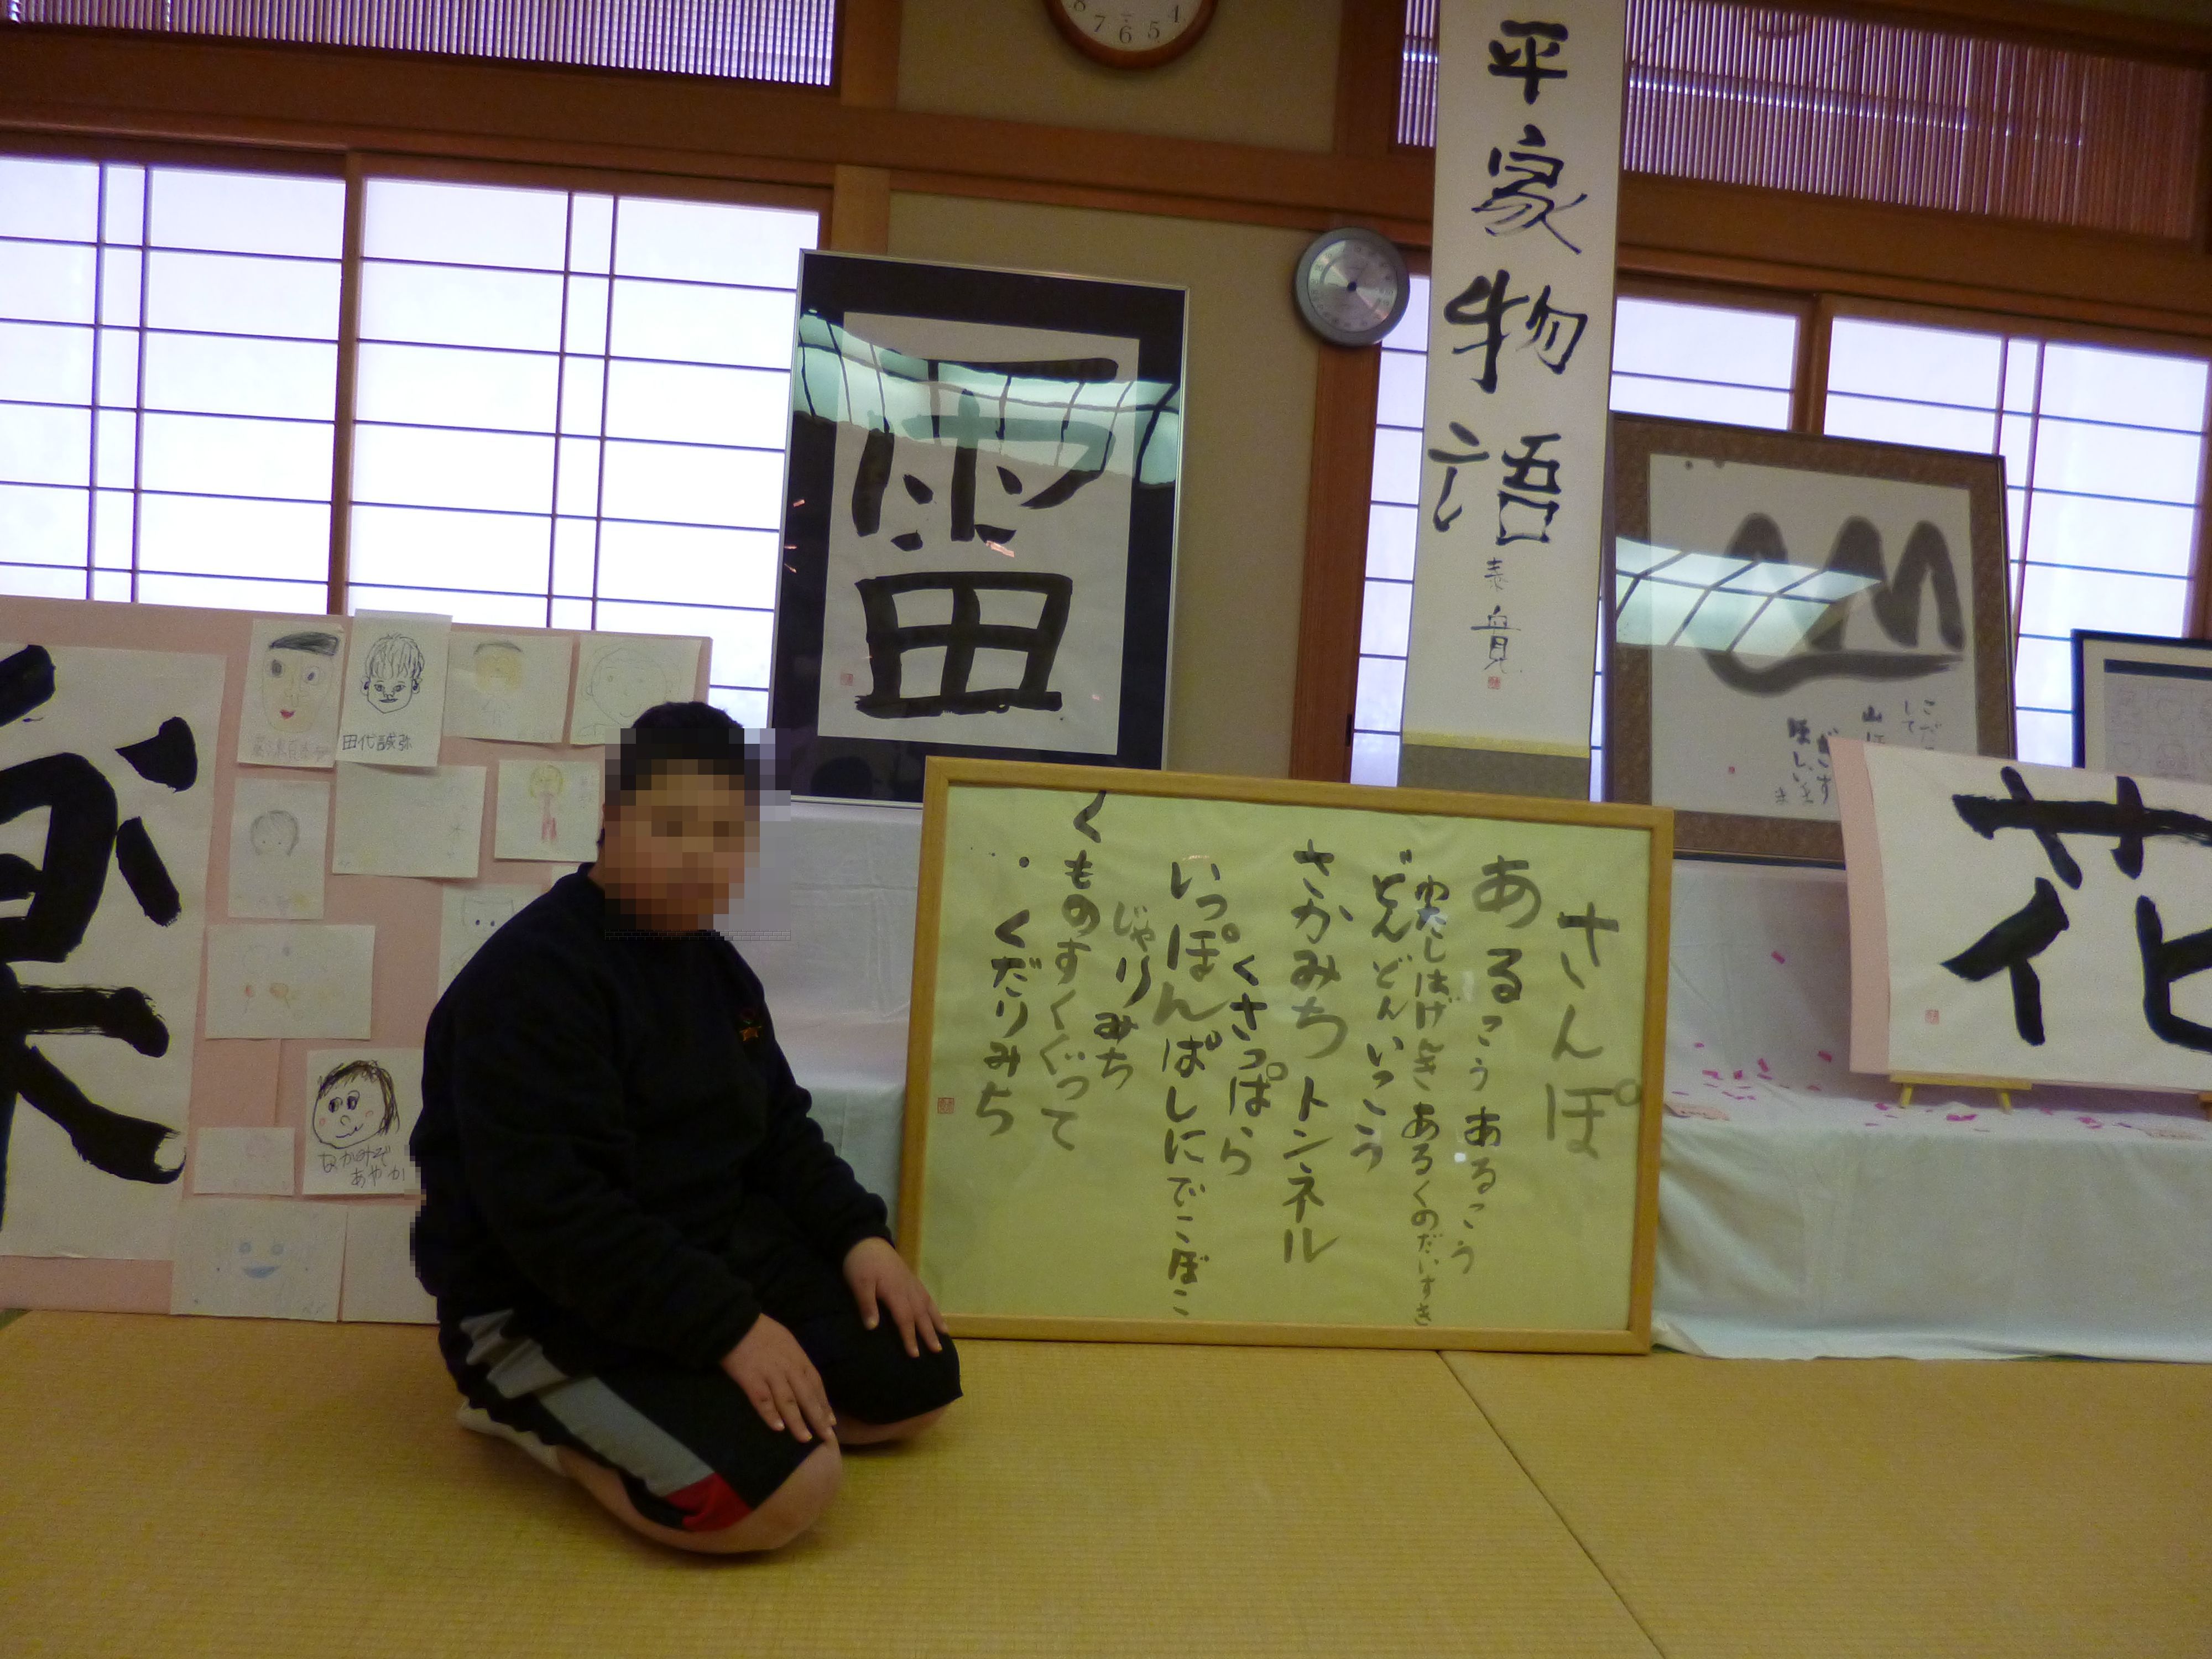 平家物語
雷
さんぽ
あるこうあるこう
わたしはげんきあるくのだいすき
どんどんいこう
さかみちトンネル
くさっぱら
いっぽんばしにでこぼこ
じゃりみち
くものすくぐって
くだりみち
花
楽
田代誠弥
なかみぞ
あやか
8 7 6 5 4